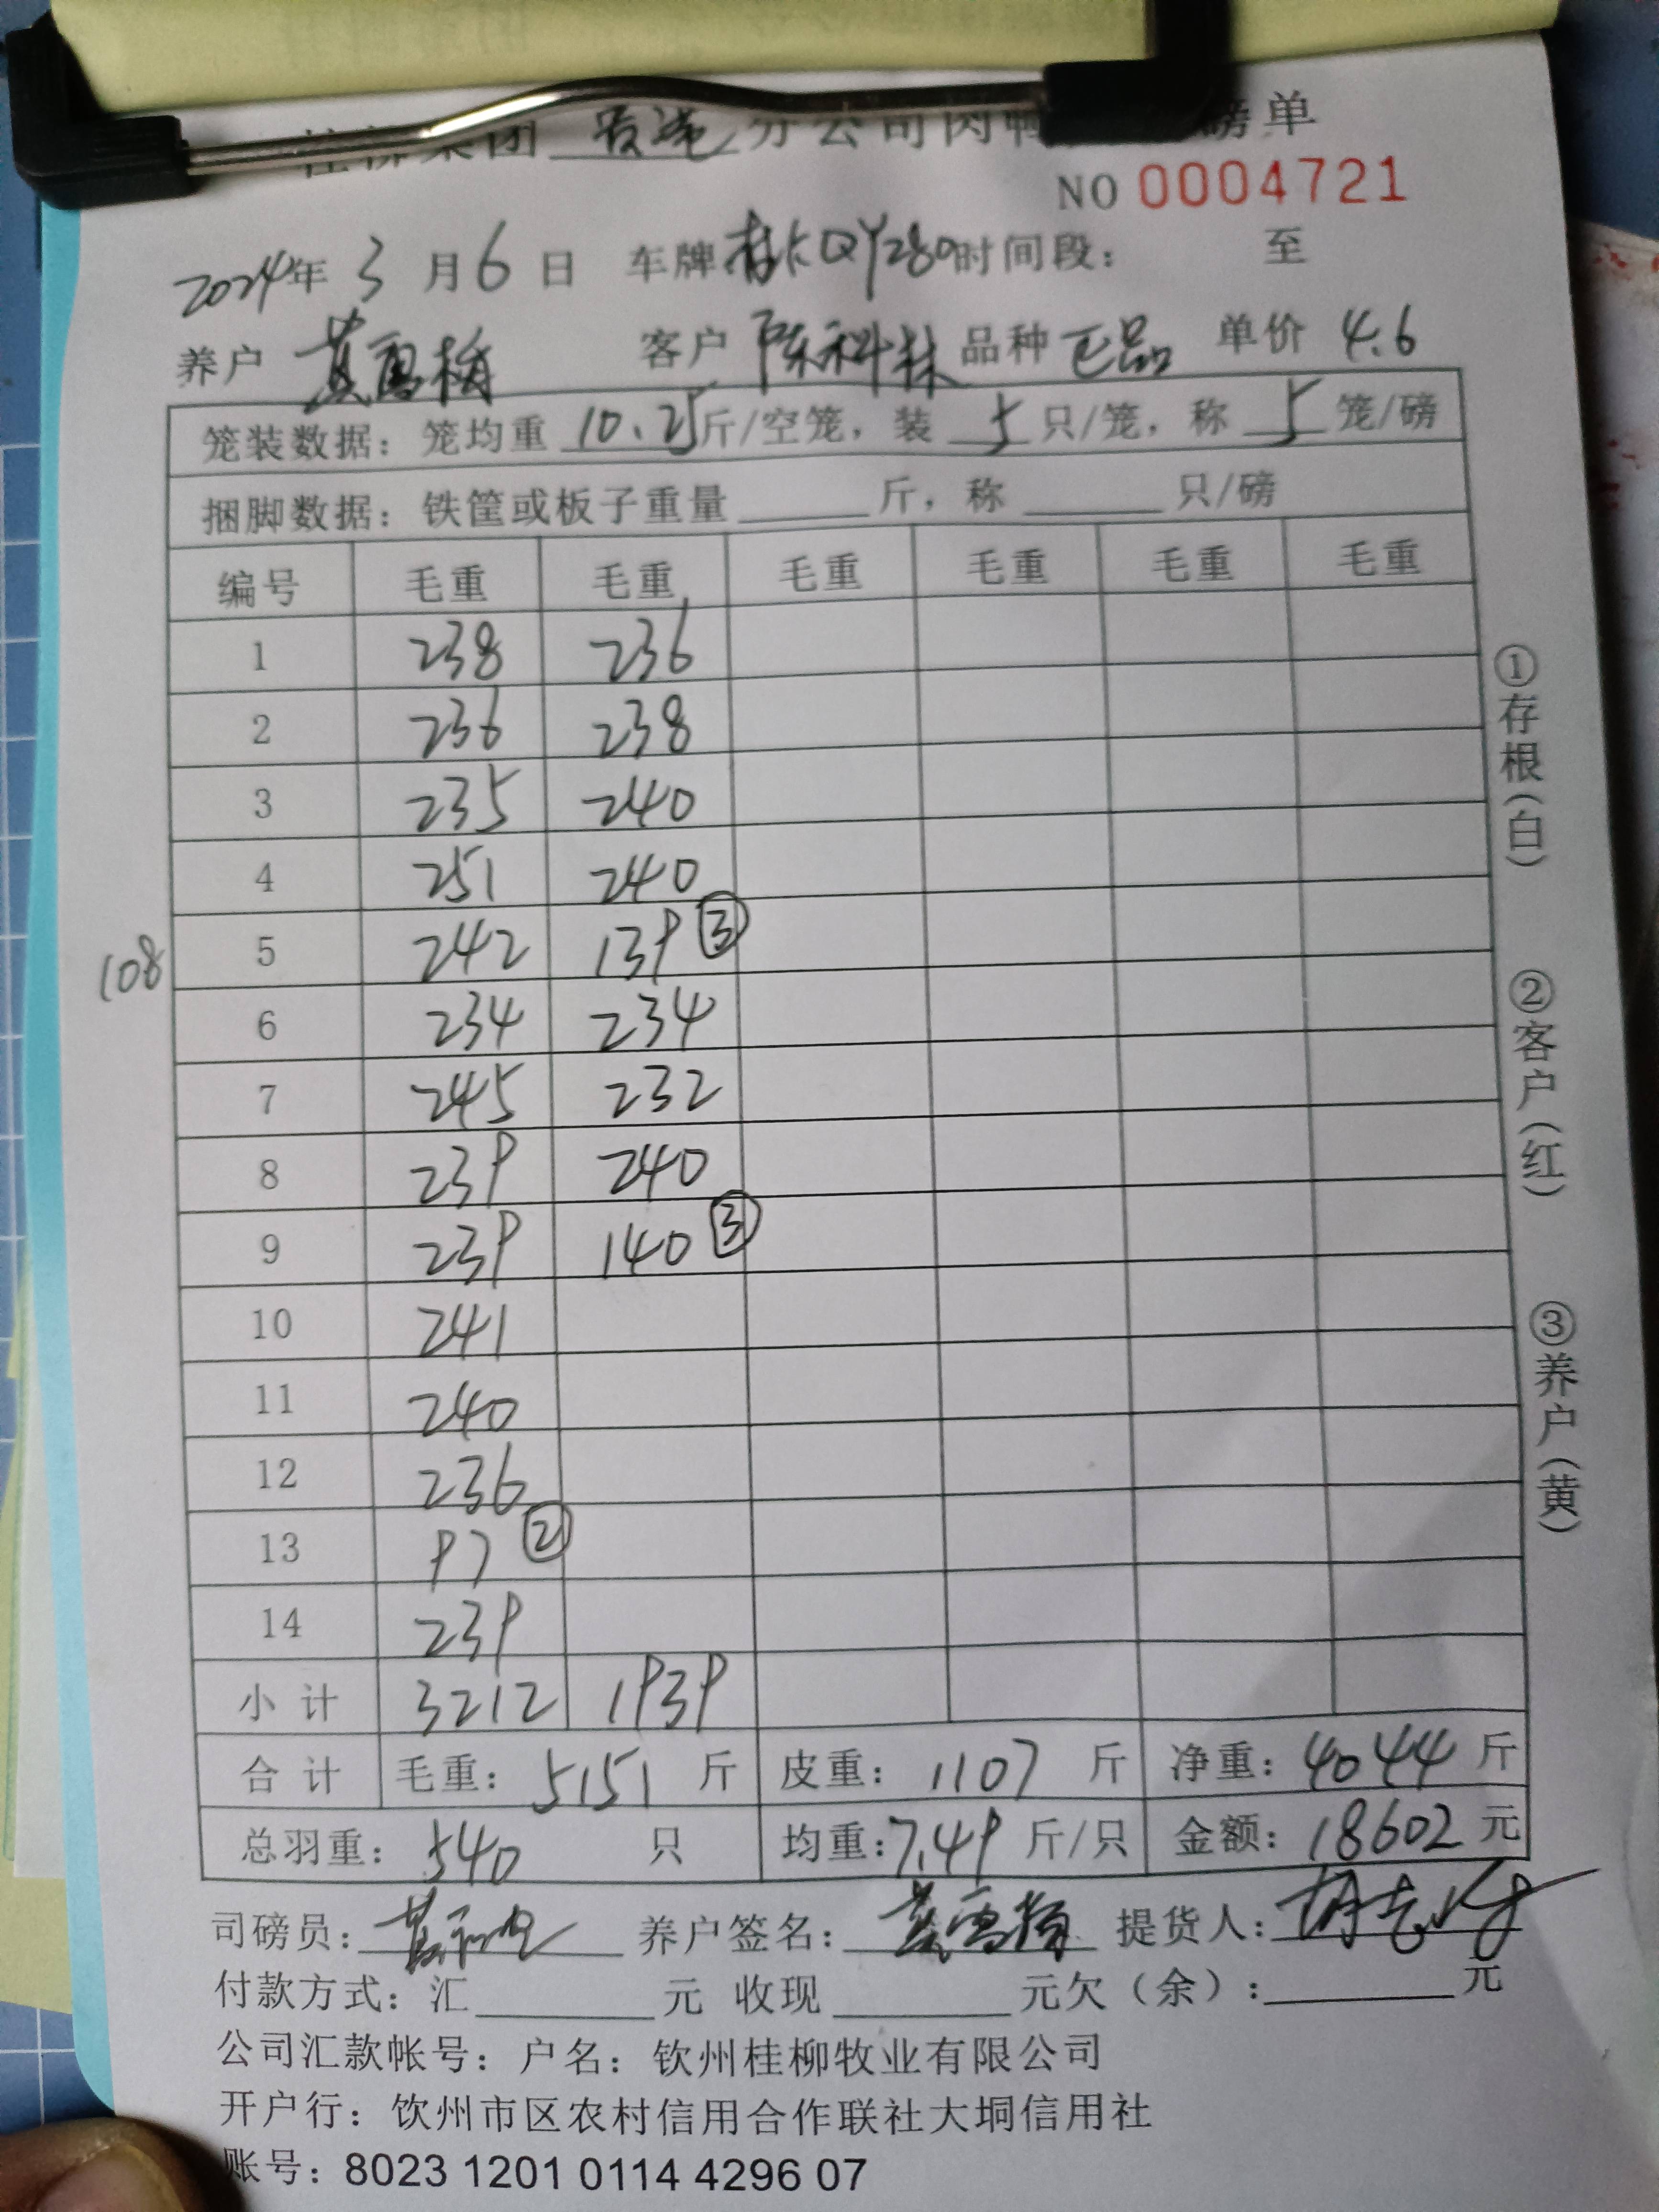 集团贵港分公司肉鸭磅单
NO 0004721
2024年 3 月 6 日 车牌 QY280 时间段： 至
养户 黄雪梅 客户 陈科林 品种 正品 单价 4.6
笼装数据：笼均重 10.25 斤/空笼，装 5 只/笼，称 5 笼/磅
捆脚数据：铁筐或板子重量______斤，称______只/磅
编号 毛重 毛重 毛重 毛重 毛重 毛重
1 238 236
2 236 238
3 235 240
4 251 240
108 5 242 139 ③
6 234 234
7 245 232
8 239 240
9 239 140 ③
10 241
11 240
12 236
13 97 ②
14 239
小计 3212 1939
合计 毛重：5151 斤 皮重：1107 斤 净重：4044 斤
总羽重：540 只 均重：7.49 斤/只 金额：18602 元
司磅员： 养户签名：黄雪梅 提货人：
付款方式：汇______元 收现______元欠（余）：______元
公司汇款帐号：户名：钦州桂柳牧业有限公司
开户行：钦州市区农村信用合作联社大垌信用社
账号：8023 1201 0114 4296 07
①存根（白）
②客户（红）
③养户（黄）